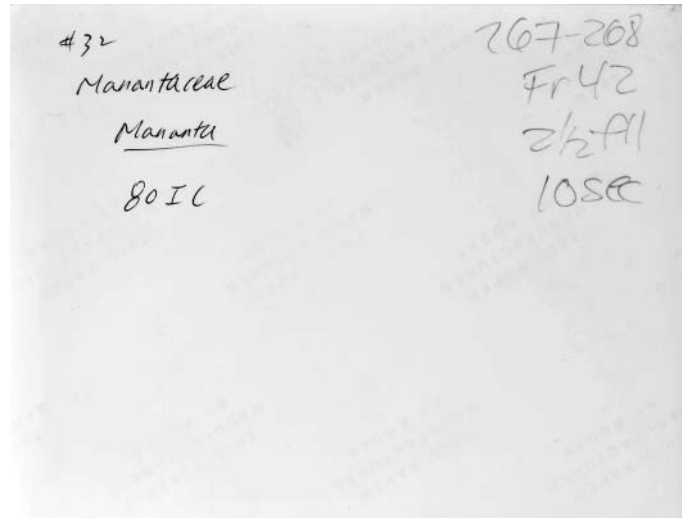 #32
Marantaceae
Maranta
80IC
267-268
Fr42
2½-f11
10SEC